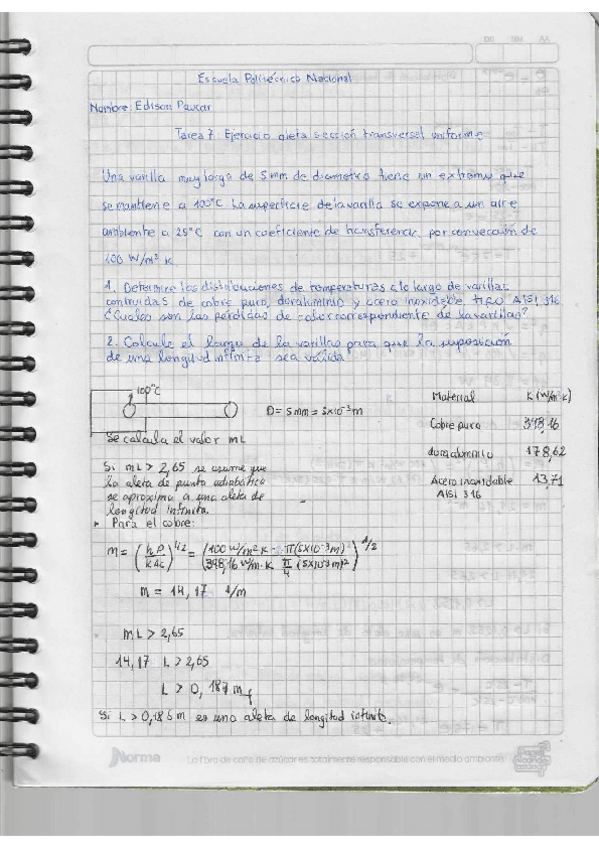 AA MES DD
Escuela Politécnica Nacional
Nombre: Edison Paucar
Tarea 7: Ejercicio aleta sección transversal uniforme
Una varilla muy larga de 5mm de diametro tiene un extremo que
se mantiene a 100°C La superficie de la varilla se expone a un aire
ambiente a 25°C con un coeficiente de transferencia por convección de
100 W/m² K
1. Determine las distribuciones de temperaturas a lo largo de varillas
contruidas de cobre puro, duraluminio y acero inoxidable, tipo AISI 316
¿Cuales son las pérdidas de calor correspondiente de las varillas?
2. Calcule el largo de la varillas para que la suposición
de una longitud infinita sea válida
100°C
D= 5mm = 5x10⁻³m
Material K (W/m·k)
Cobre puro 398,16
duraluminio 178,62
Acero inoxidable 13,71
AISI 316
Se calcula el valor mL
Si mL > 2,65 se asume que
la aleta de punta adiabática
se aproxima a una aleta de
longitud infinita.
Para el cobre:
m = (hP / KAc)^1/2 = (100 W/m² K · π(5x10⁻³m) / 398,16 W/m·K π/4 (5x10⁻³m)²)^1/2
m = 14,17 1/m
mL > 2,65
14,17 L > 2,65
L > 0,187 m
Si L > 0,186 m es una aleta de longitud infinita.
Norma La fibra de caña de azúcar es totalmente responsable con el medio ambiente